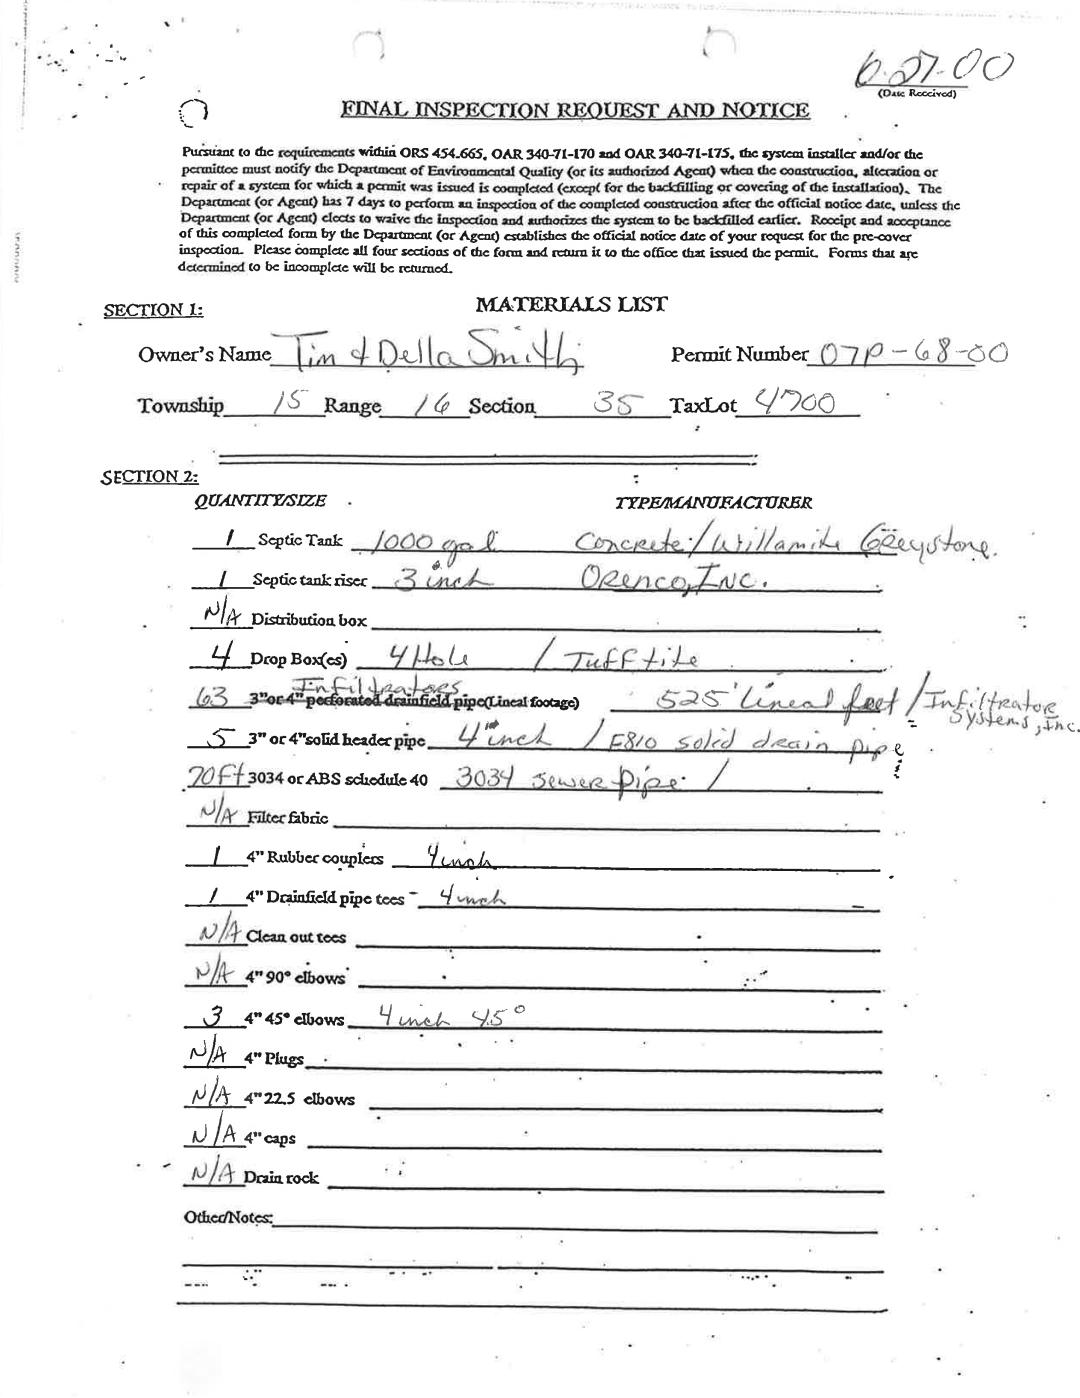 6-27-00
(Date Received)
FINAL INSPECTION REQUEST AND NOTICE
Pursuant to the requirements within ORS 454.665, OAR 340-71-170 and OAR 340-71-175, the system installer and/or the
permittee must notify the Department of Environmental Quality (or its authorized Agent) when the construction, alteration or
repair of a system for which a permit was issued is completed (except for the backfilling or covering of the installation). The
Department (or Agent) has 7 days to perform an inspection of the completed construction after the official notice date, unless the
Department (or Agent) elects to waive the inspection and authorizes the system to be backfilled earlier. Receipt and acceptance
of this completed form by the Department (or Agent) establishes the official notice date of your request for the pre-cover
inspection. Please complete all four sections of the form and return it to the office that issued the permit. Forms that are
determined to be incomplete will be returned.
SECTION 1: MATERIALS LIST
Owner's Name Tim & Della Smith Permit Number 07P-68-00
Township 15 Range 16 Section 35 TaxLot 4700
SECTION 2:
QUANTITY/SIZE TYPE/MANUFACTURER
1 Septic Tank 1000 gal Concrete/Willamite Greystone.
1 Septic tank riser 3 inch Orenco, Inc.
N/A Distribution box
4 Drop Box(es) 4 Hole / Tufftite
Infiltrators
63 3" or 4" perforated drainfield pipe(Lineal footage) 525' lineal feet / Infiltrator Systems, Inc.
5 3" or 4" solid header pipe 4 inch / E810 solid drain pipe
70ft 3034 or ABS schedule 40 3034 sewer pipe /
N/A Filter fabric
1 4" Rubber couplers 4 inch
1 4" Drainfield pipe tees 4 inch
N/A Clean out tees
N/A 4" 90° elbows
3 4" 45° elbows 4 inch 45°
N/A 4" Plugs
N/A 4" 22.5 elbows
N/A 4" caps
N/A Drain rock
Other/Notes: